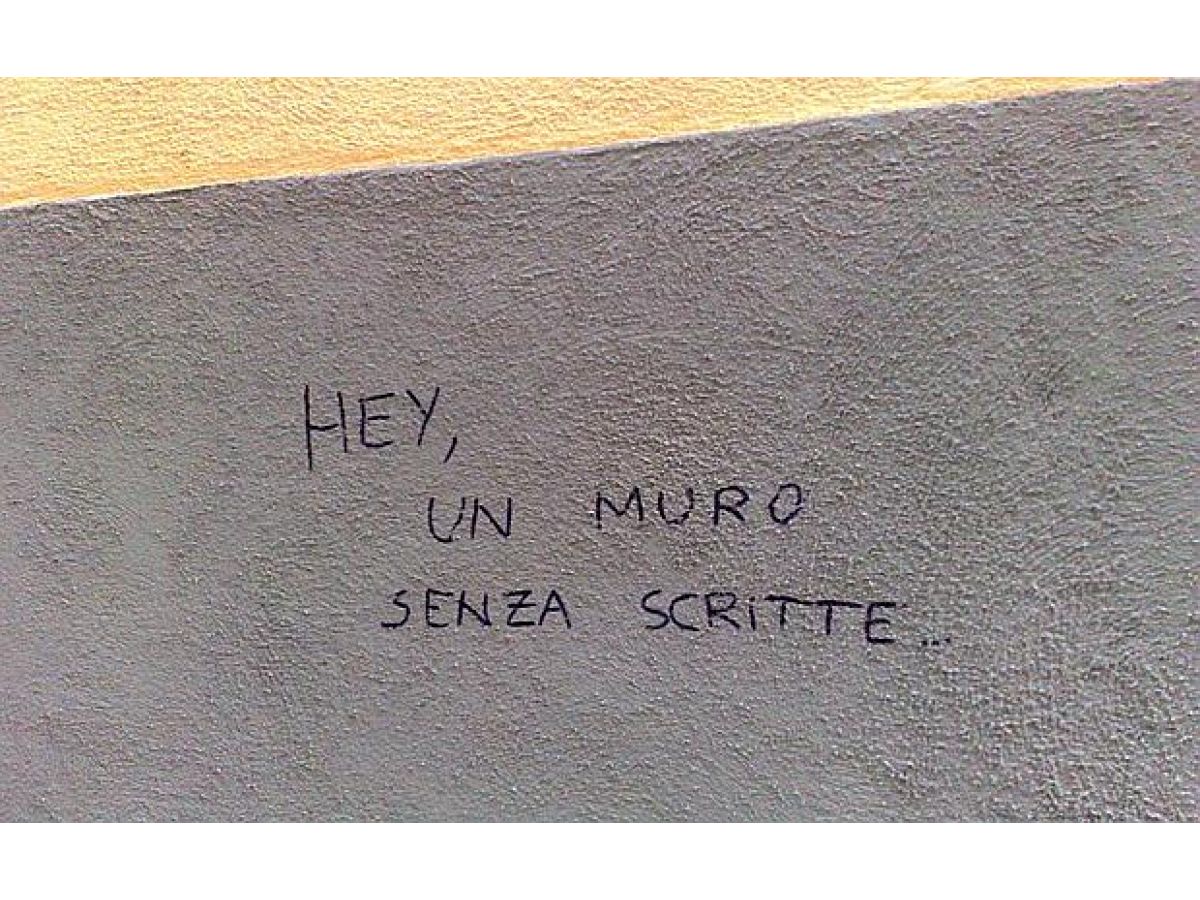 HEY,
UN MURO
SENZA SCRITTE...